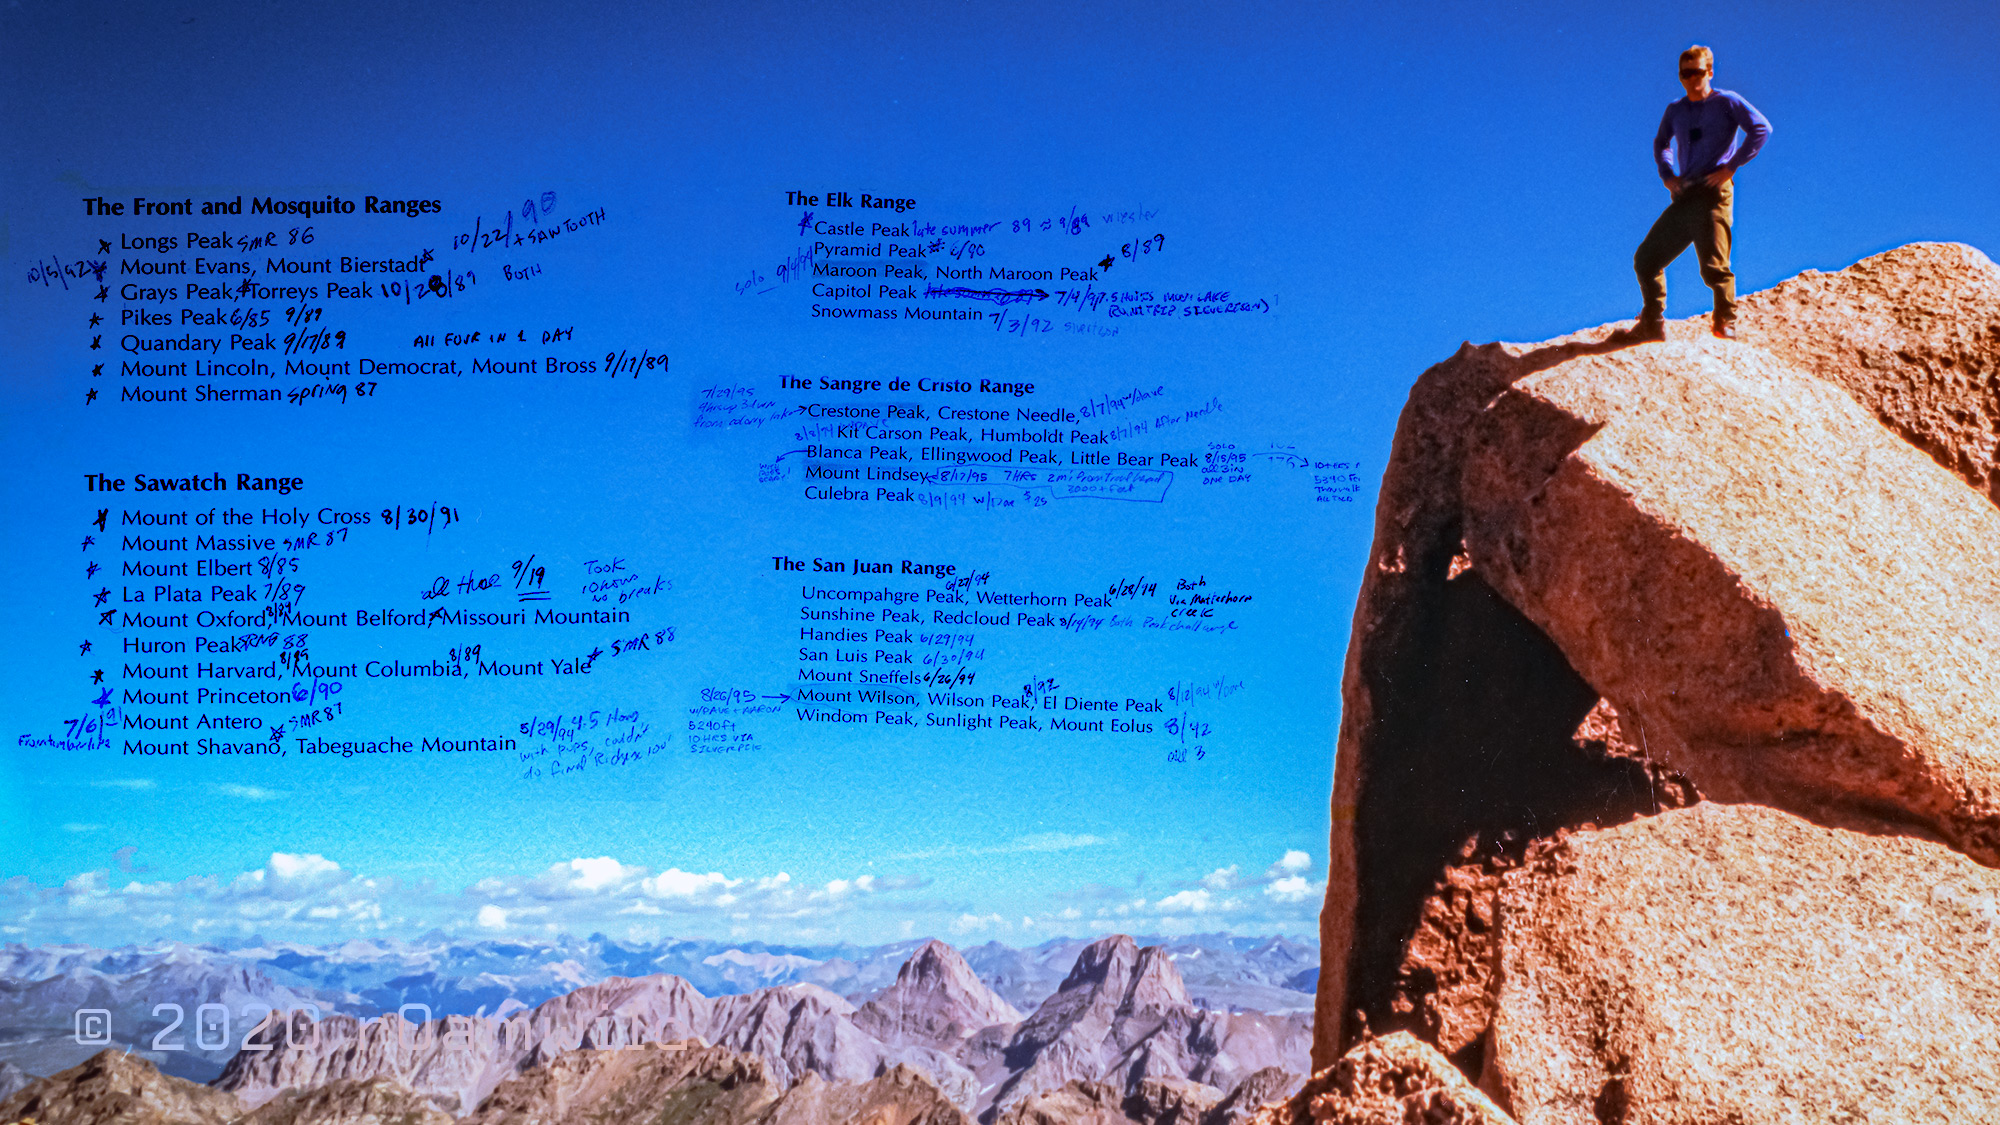 The Front and Mosquito Ranges
Longs Peak SMR 86
10/22/90 + SAWTOOTH
10/5/92 Mount Evans, Mount Bierstadt
Grays Peak, Torreys Peak 10/28/89 BOTH
Pikes Peak 6/85 9/89
Quandary Peak 9/17/89 All FOUR IN 1 DAY
Mount Lincoln, Mount Democrat, Mount Bross 9/17/89
Mount Sherman spring 87
The Sawatch Range
Mount of the Holy Cross 8/30/91
Mount Massive SMR 87
Mount Elbert 8/85
La Plata Peak 7/89
all three 9/19
Took
10 hours
No breaks
Mount Oxford, Mount Belford, Missouri Mountain
Huron Peak SRNG 88
Mount Harvard, 8/89 Mount Columbia, 8/89 Mount Yale SMR 88
Mount Princeton 6/90
7/6/91 Mount Antero SMR 87
From timberline
Mount Shavano, Tabeguache Mountain
5/29/94 4.5 Hours
with pups, couldn't
do final Ridge
The Elk Range
Castle Peak late summer 89 ≈ 9/89
Pyramid Peak 6/90
solo
Maroon Peak, North Maroon Peak 8/89
Capitol Peak 7/4/97
Snowmass Mountain 7/3/92
The Sangre de Cristo Range
7/29/95
Crestone Peak, Crestone Needle, 8/7/94 w/ Dave
Kit Carson Peak, Humboldt Peak 8/7/94 After Needle
Blanca Peak, Ellingwood Peak, Little Bear Peak
SOLO
8/15/95
all 3 in
ONE DAY
Mount Lindsey 8/17/95 7HRS 2mi from trailhead
3000+ feet
Culebra Peak 8/9/94 w/Dave $25
The San Juan Range
Uncompahgre Peak, 6/27/94 Wetterhorn Peak 6/28/94
Both
Via Matterhorn
Creek
Sunshine Peak, Redcloud Peak 8/14/94 Both Peak challenge
Handies Peak 6/29/94
San Luis Peak 6/30/94
Mount Sneffels 6/26/94
8/26/95
W/DAVE + AARON
5240ft
10 HRS VIA
SILVERPICK
Mount Wilson, Wilson Peak, 8/92 El Diente Peak 8/12/94 w/Dave
Windom Peak, Sunlight Peak, Mount Eolus 8/92
all 3
© 2020 r0amwild